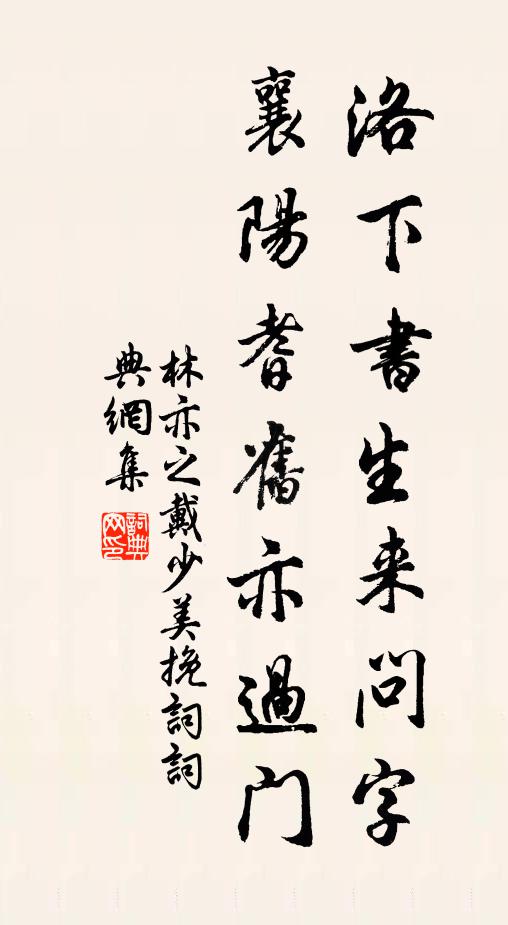 洛下書生来問字
襄陽耆舊亦過门
林亦之戴少美挽詞詞
典網集
詞典
网印